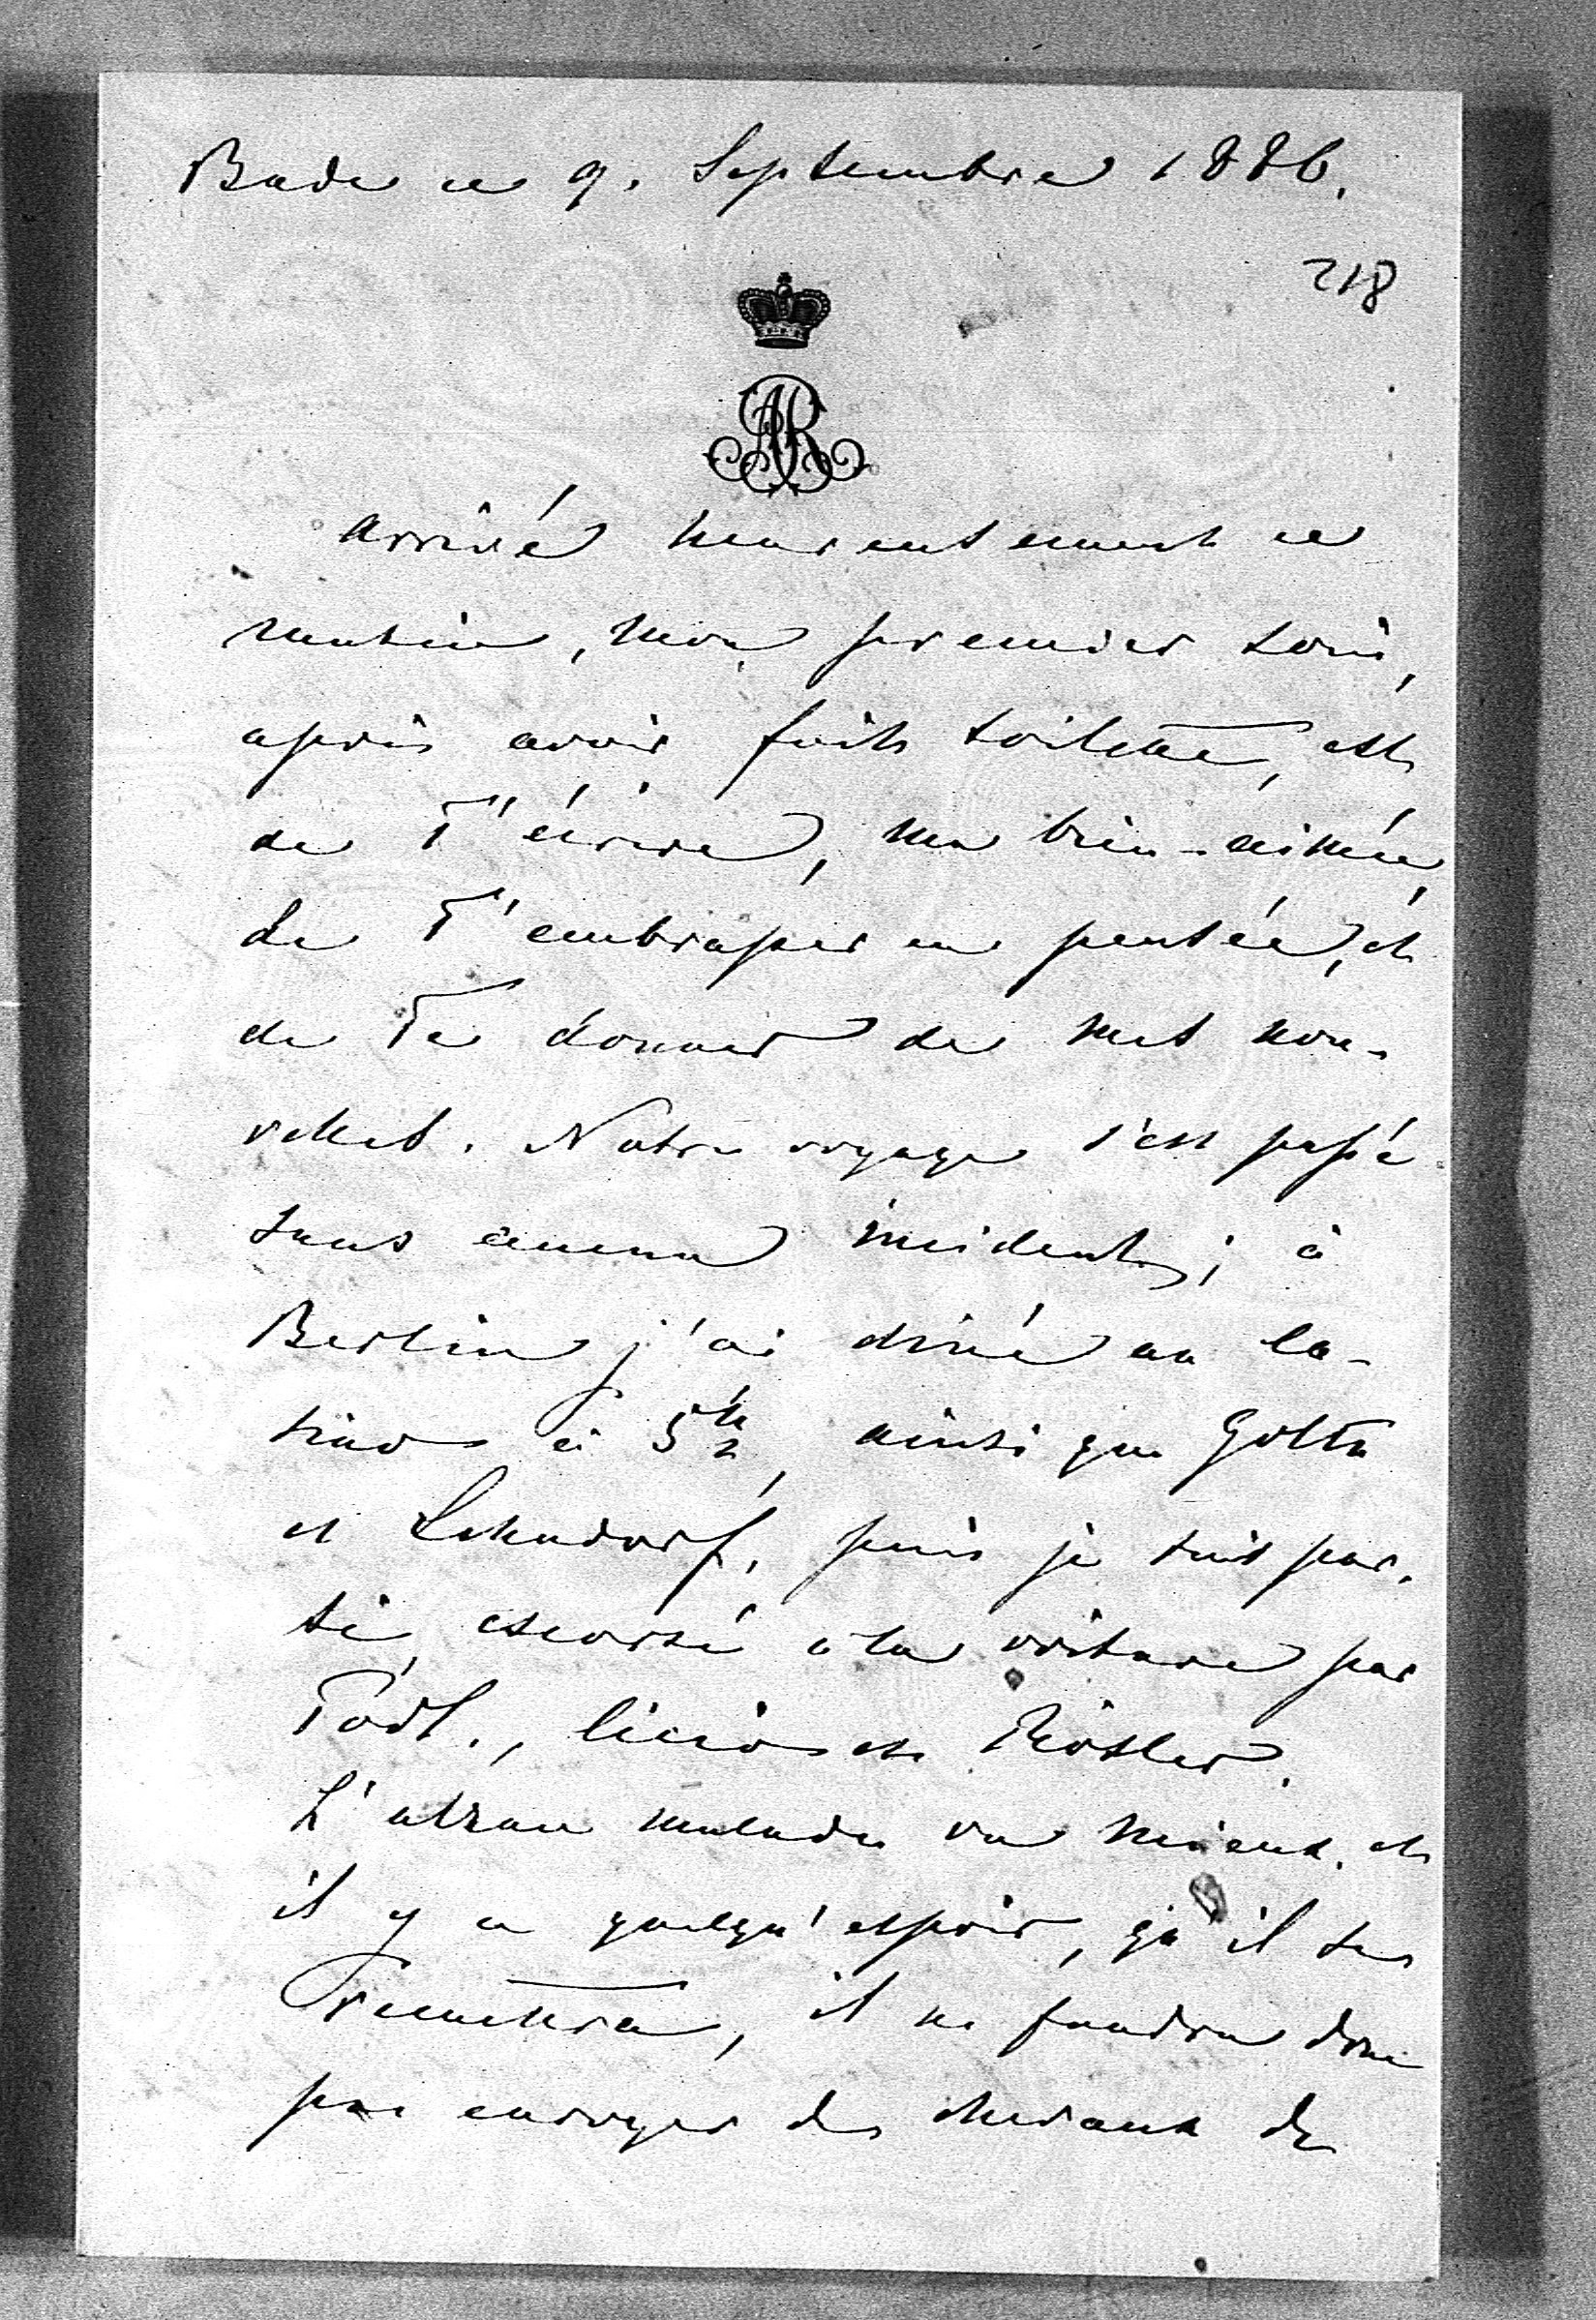 Bade ce 9. Septembre 1886.
218
AR
Arrivé heureusement ce
matin, mon premier soin,
après avoir fait toilette, est
de T'écrire, ma bien-aimée,
de T'embrasser en pensée, et
de Te donner de mes nou-
velles. Notre voyage s'est passé
sans aucun incident; à
Berlin j'ai diné au Ca-
sino à 5h, ainsi que
et Lehndorf, puis je suis par-
ti, escorté à la voiture par
Podl., et Rösler.
L' malade va mieux, et
il y a quelqu'espoir, qu'il se
remettra, il ne faudra donc
pas envoyer des chevaux de